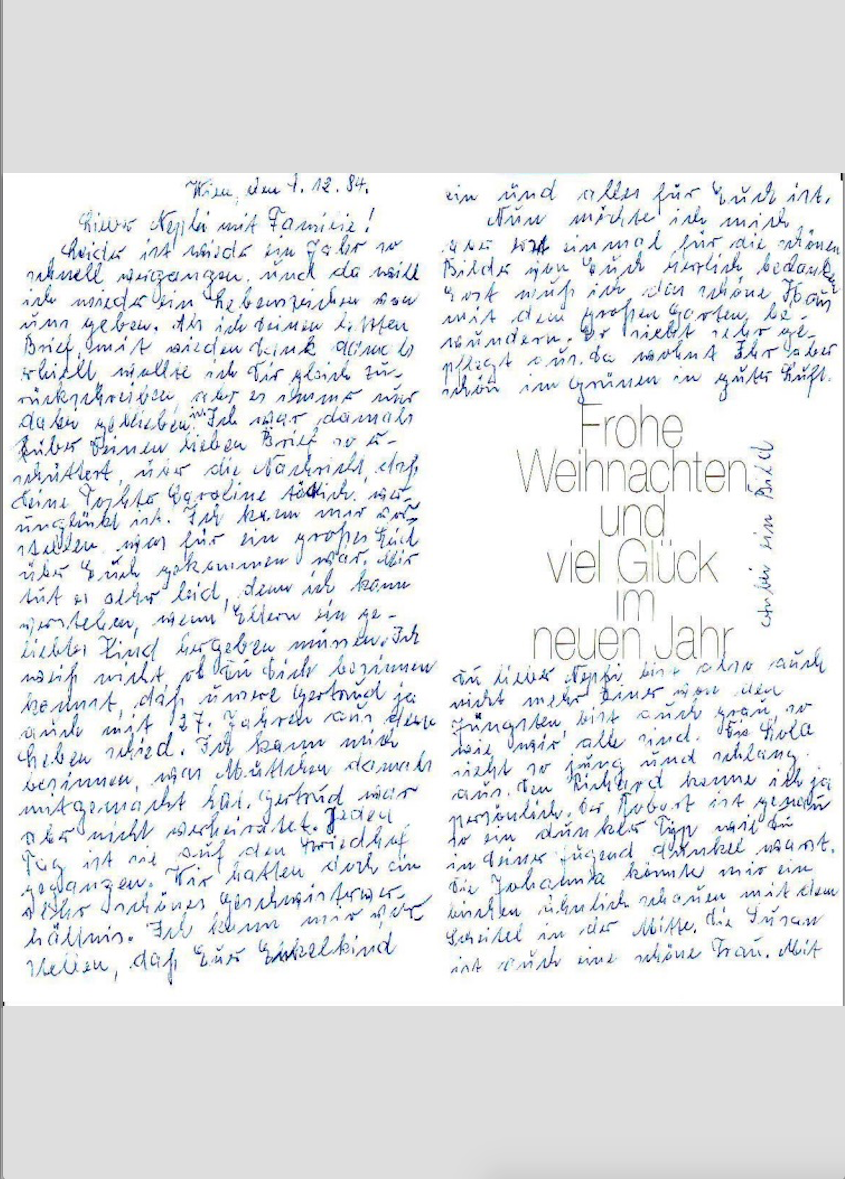 Wien, den 1. 12. 84.
Lieber Neffe mit Familie!
Leider ist wieder ein Jahr so
schnell vergangen und da will
ich wieder ein Lebenszeichen von
uns geben. Als ich deinen letzten
Brief, mit
erhielt wollte ich Dir gleich zu-
rückschreiben, aber es ist immer nur
dabei geblieben. Ich war damals
über Deinen lieben Brief so er-
schüttert, über die Nachricht, daß
deine Tochter Caroline tödlich ver-
unglückt ist. Ich kann mir vor-
stellen, was für ein großes Leid
über Euch gekommen war. Mir
tut es sehr leid, denn ich kann
verstehen, wenn Eltern ein ge-
liebtes Kind hergeben müssen. Ich
weiß nicht, ob Du Dich besinnen
kannst, daß unsere Gertrud ja
auch mit 27. Jahren aus dem
Leben schied. Ich kann mich
besinnen, was Muttchen damals
mitgemacht hat. Gertrud war
aber nicht verheiratet. Jeden
Tag ist sie auf den Friedhof
gegangen. Wir hatten doch ein
sehr schönes Geschwisterver-
hältnis. Ich kann mir vor-
stellen, daß Euer Enkelkind
ein und alles für Euch ist.
Nun möchte ich mich
aber erst einmal für die schönen
Bilder von Euch herzlich bedanken
Erst muß ich das schöne Haus
mit dem großen Garten, be-
wundern. Er sieht sehr ge-
pflegt aus. Da wohnt Ihr aber
schön im Grünen in guter Luft.
Frohe
Weihnachten
und
viel Glück
im
neuen Jahr
ein Bild
Du lieber Neffe, bist also auch
nicht mehr einer von den
Jüngsten bist auch grau, so
wie wir alle sind. Die Lola
sieht so jung und schlank
aus. Den Richard kenne ich ja
persönlich. Der Robert ist genau
so ein dunkler Typ weil Du
in deiner Jugend dunkel warst.
Die Johanna könnte mir ein
bischen ähnlich schauen mit dem
Scheitel in der Mitte. Die Susan
ist auch eine schöne Frau. Mit